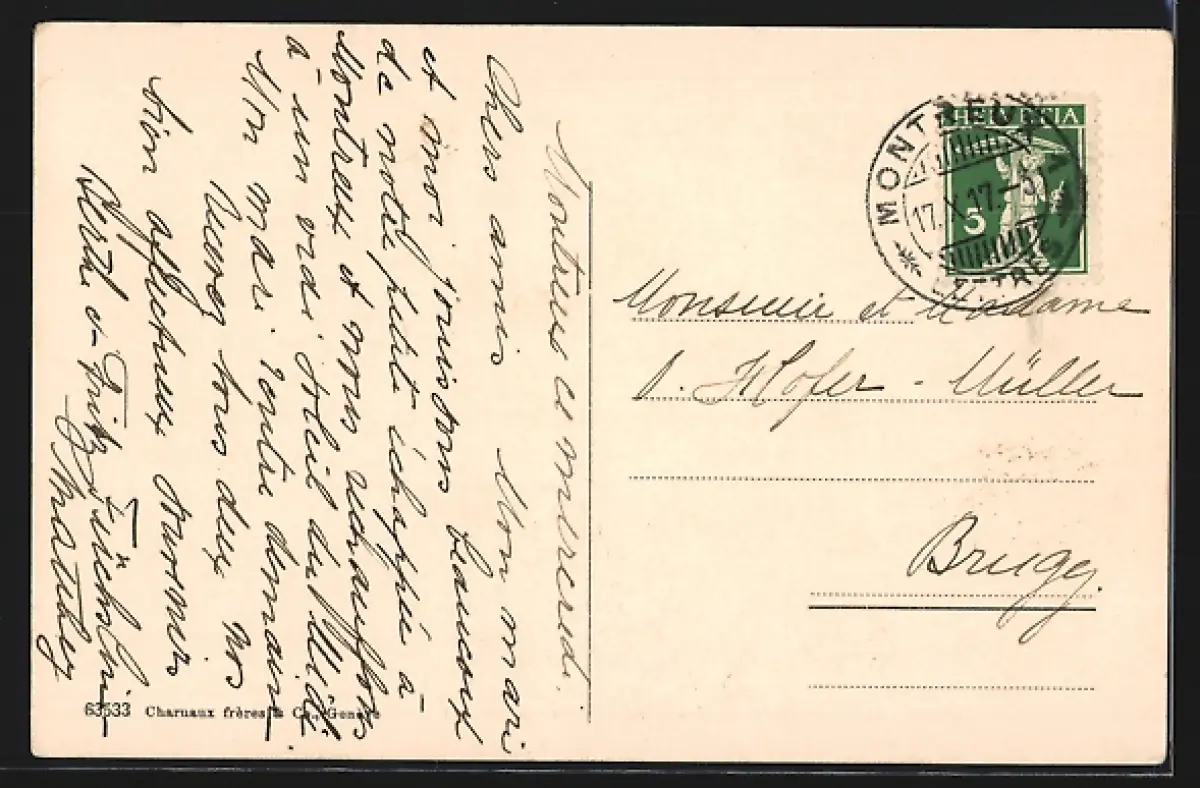 Montreux ce mercredi.
Chers amis Mon mari
et moi jouissons beaucoup
de notre petite échappée à
Montreux et nous réchauffons
à un vrai soleil du Midi.
Mon mari rentre demain
Recevez tous deux nos
bien affectueux souvenirs
Berthe et Fritz
63533 Charnaux frères & Co., Genève
HELVETIA
5
MONTREUX
17.X.17.-5
LETTRES
Monsieur et Madame
Hofer - Müller
Brugg.